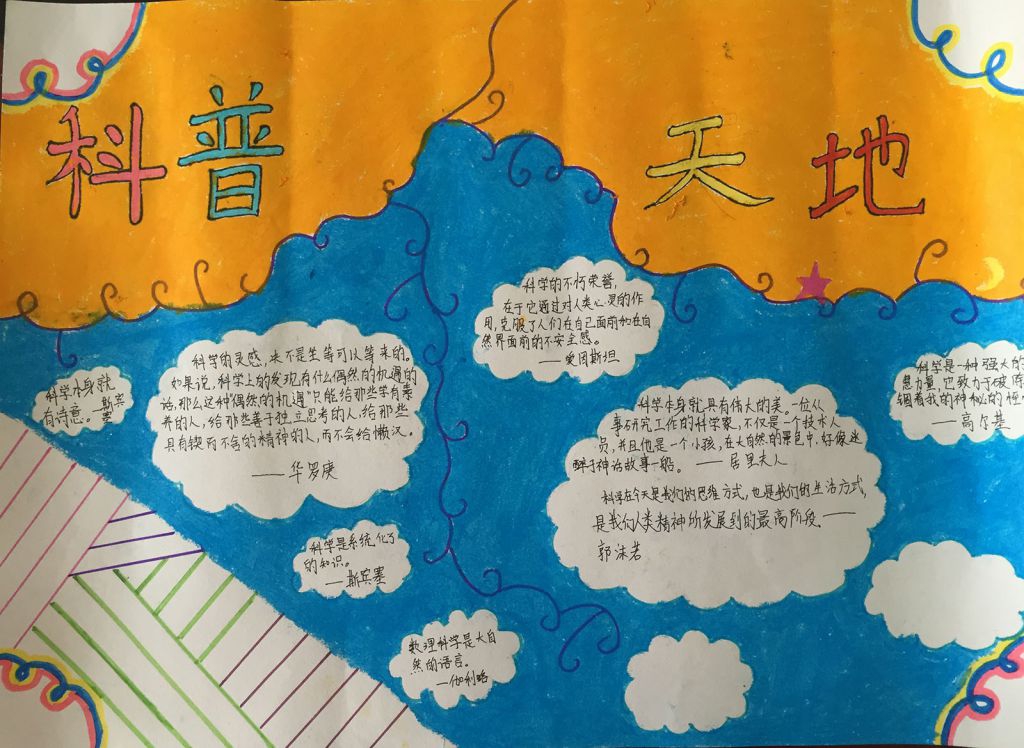 科普
天地
科学的不朽荣誉，
在于它通过对人类心灵的作
用，克服了人们在自己面前和在自
然界面前的不安全感。
——爱因斯坦
科学的灵感，决不是坐等可以等来的。
如果说，科学上的发现有什么偶然的机遇的
话，那么这种“偶然的机遇”只能给那些学有素
养的人，给那些善于独立思考的人，给那些
具有锲而不舍的精神的人，而不会给懒汉。
——华罗庚
科学本身就
有诗意。—斯宾
塞
科学是一种强大的
想力量，它致力于破除
锢着我的神秘的
——高尔基
科学本身就具有伟大的美。一位从
事研究工作的科学家，不仅是一个技术人
员，并且他是一个小孩，在大自然的景色中，好像迷
醉于神话故事一般。——居里夫人
科学在今天是我们的思维方式，也是我们的生活方式，
是我们人类精神所发展到的最高阶段。——
郭沫若
科学是系统化了
的知识。
——斯宾塞
数理科学是大自
然的语言。
—伽利略